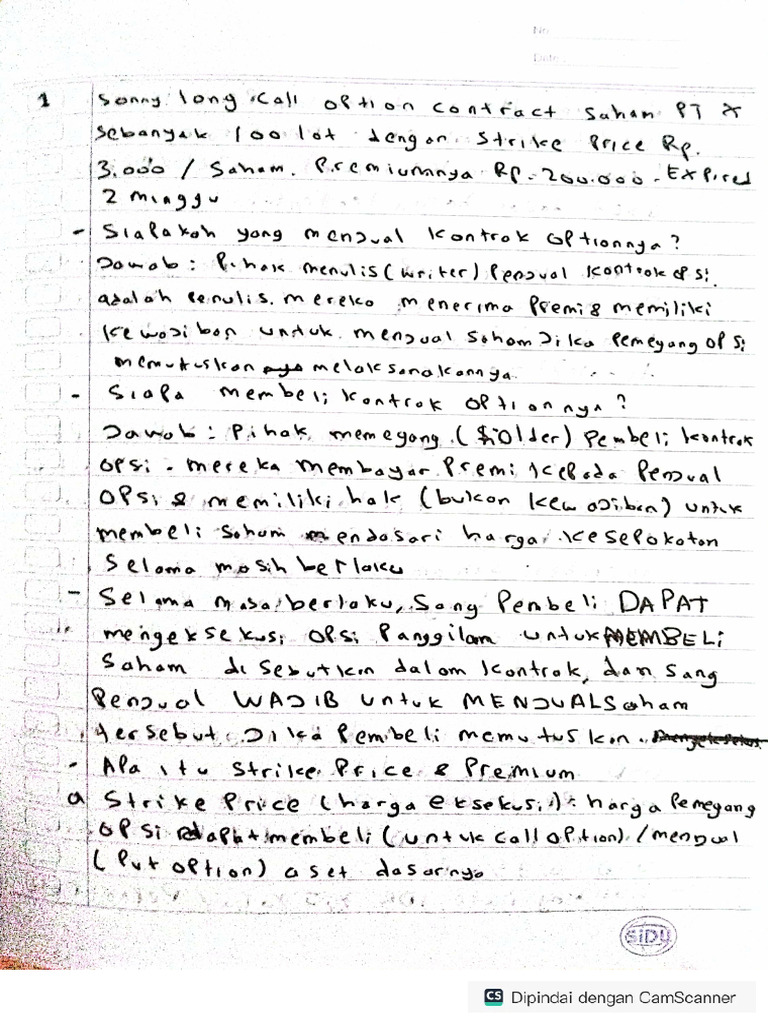 No
Date
1 Sonny long call option contract saham PT X
sebanyak 100 lot dengan strike Price Rp.
3.000 / Saham. Premiumnya Rp. 200.000. Expired
2 minggu
- Siapakah yang menjual kontrak optionnya?
Jawab : Pihak menulis (writer) Penjual kontrak opsi
adalah penulis. mereka menerima Premi & memiliki
kewajiban untuk menjual saham jika Pemegang opsi
memutuskan melaksanakannya.
- Siapa membeli kontrak optionnya?
Jawab : Pihak memegang ( older) Pembeli kontrak
opsi. mereka membayar Premi kepada Penjual
opsi & memiliki hak (bukan kewajiban) untuk
membeli saham mendasari harga kesepakatan
Selama masih berlaku
- Selama masa berlaku, Sang Pembeli DAPAT
mengeksekusi opsi Panggilan untuk MEMBELI
Saham disebutkan dalam kontrak, dan sang
Penjual WAJIB untuk MENJUAL Saham
tersebut. Jika Pembeli memutuskan.
- Apa itu Strike Price & Premium
a Strike Price (harga eksekusi) : harga Pemegang
opsi dapat membeli (untuk call option) / menjual
(Put option) aset dasarnya
SIDU
CS Dipindai dengan CamScanner